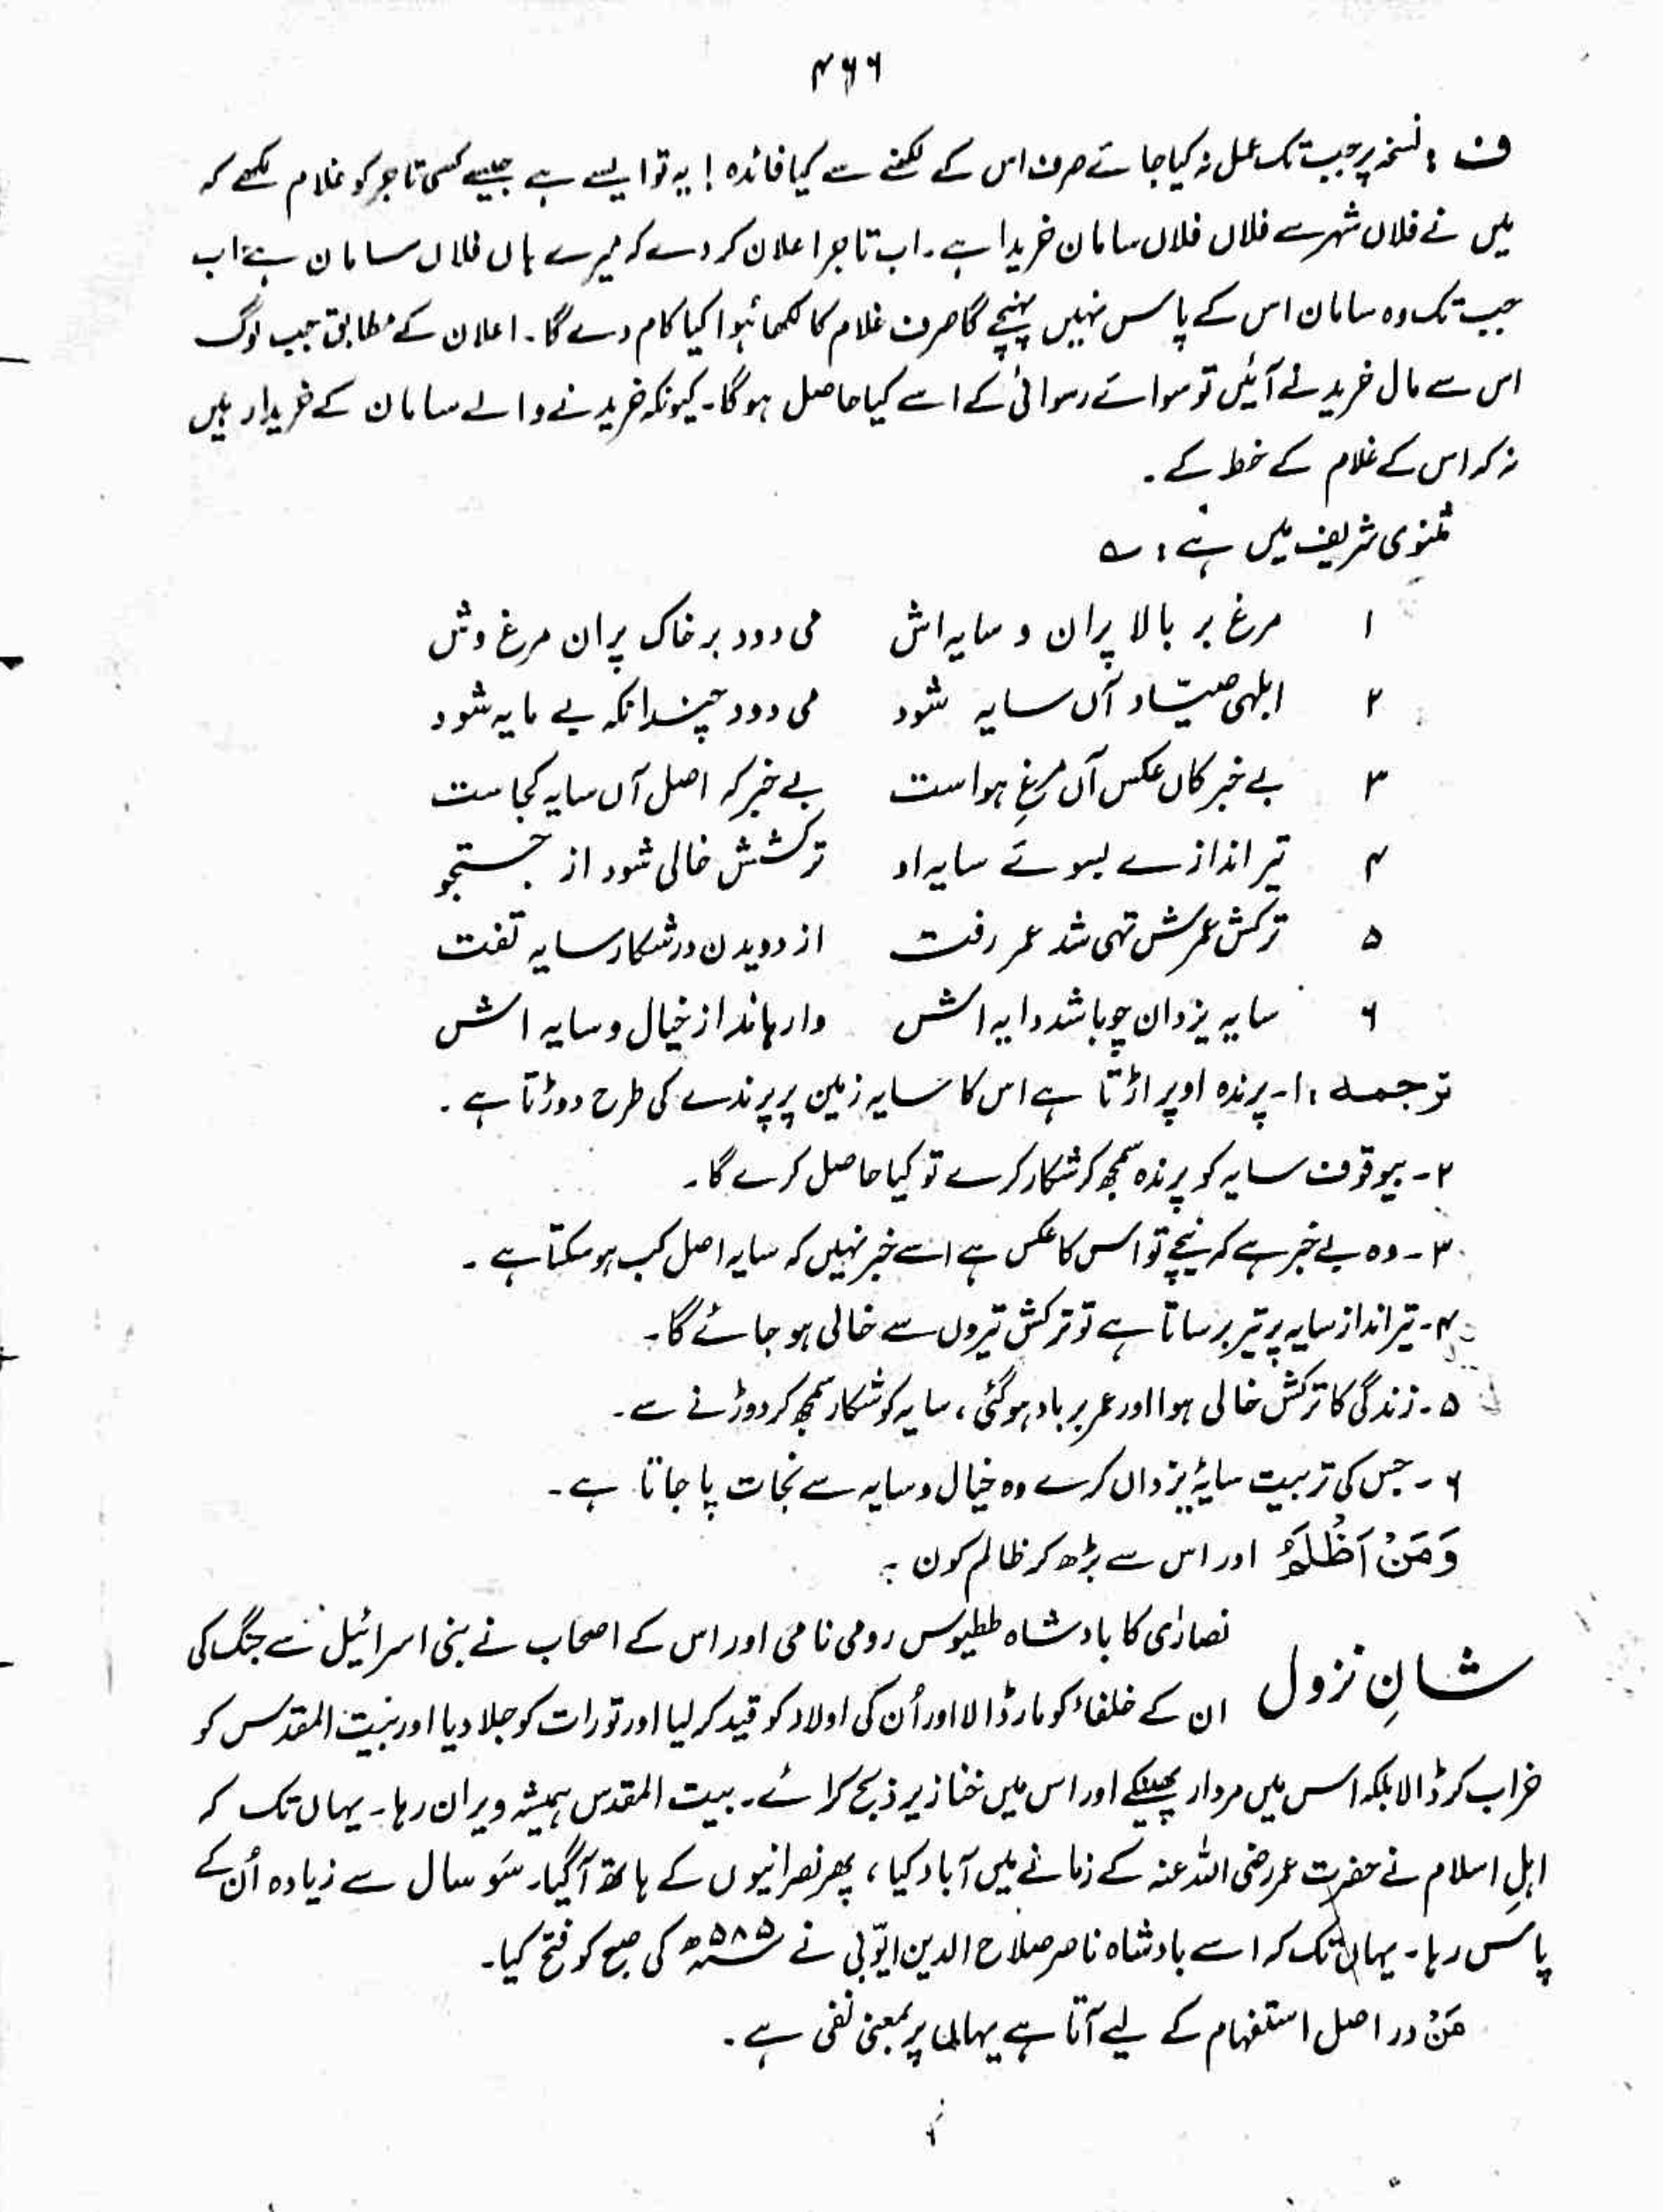 ۴۶۶
ف : نسخہ پر جب تک عمل نہ کیا جائے صرف اس کے لکھنے سے کیا فائدہ ! یہ تو ایسے ہے جیسے کسی تاجر کو غلام لکھے کہ
میں نے فلاں شہر سے فلاں فلاں سامان خریدا ہے ۔ اب تاجر اعلان کر دے کہ میرے ہاں فلاں سامان ہے اب
جب تک وہ سامان اس کے پاس نہیں پہنچے گا صرف غلام کا لکھا ہوا کیا کام دے گا ۔ اعلان کے مطابق جب لوگ
اس سے مال خریدنے آئیں تو سوائے رسوائی کے اسے کیا حاصل ہو گا ۔ کیونکہ خریدنے والے سامان کے خریدار ہیں
نہ کہ اس کے غلام کے خط کے ۔
مثنوی شریف میں ہے : ؎
۱ مرغ بر بالا پران و سایہ اش می دود بر خاک پران مرغ وش
۲ ابلہی صیّاد آں سایہ شود می دود چندانکہ بے مایہ شود
۳ بے خبر کاں عکس آں مرغِ ہواست بے خبر کہ اصل آں سایہ کجاست
۴ تیر اندازے بسوئے سایہ او ترکشش خالی شود از جستجو
۵ ترکش عمرش تہی شد عمر رفت از دویدن در شکار سایہ تفت
۶ سایہ یزدان چو باشد دایہ اش وارہاند از خیال و سایہ اش
ترجمہ : ۱ ۔ پرندہ اوپر اڑتا ہے اس کا سایہ زمین پر پرندے کی طرح دوڑتا ہے ۔
۲ ۔ بیوقوف سایہ کو پرندہ سمجھ کر شکار کرے تو کیا حاصل کرے گا ۔
۳ ۔ وہ بے خبر ہے کہ نیچے تو اس کا عکس ہے اسے خبر نہیں کہ سایہ اصل کب ہو سکتا ہے ۔
۴ ۔ تیر انداز سایہ پر تیر برساتا ہے تو ترکش تیروں سے خالی ہو جائے گا ۔
۵ ۔ زندگی کا ترکش خالی ہوا اور عمر برباد ہو گئی ، سایہ کو شکار سمجھ کر دوڑنے سے ۔
۶ ۔ جس کی تربیت سایۂ یزداں کرے وہ خیال و سایہ سے نجات پا جاتا ہے ۔
وَمَنْ اَظْلَمُ اور اس سے بڑھ کر ظالم کون ؟
شانِ نزول نصاریٰ کا بادشاہ ططیوس رومی نامی اور اس کے اصحاب نے بنی اسرائیل سے جنگ کی
ان کے خلفاء کو مار ڈالا اور اُن کی اولاد کو قید کر لیا اور تورات کو جلا دیا اور بیت المقدس کو
خراب کر ڈالا بلکہ اس میں مردار پھینکے اور اس میں خنازیر ذبح کرائے ۔ بیت المقدس ہمیشہ ویران رہا ۔ یہاں تک کہ
اہلِ اسلام نے حضرت عمر رضی اللہ عنہ کے زمانے میں آباد کیا ، پھر نصرانیوں کے ہاتھ آ گیا ۔ سَو سال سے زیادہ اُن کے
پاس رہا ۔ یہاں تک کہ اسے بادشاہ ناصر صلاح الدین ایّوبی نے ۵۸۵ھ کی صبح کو فتح کیا ۔
مَنْ در اصل استفہام کے لیے آتا ہے یہاں پر بمعنی نفی ہے ۔